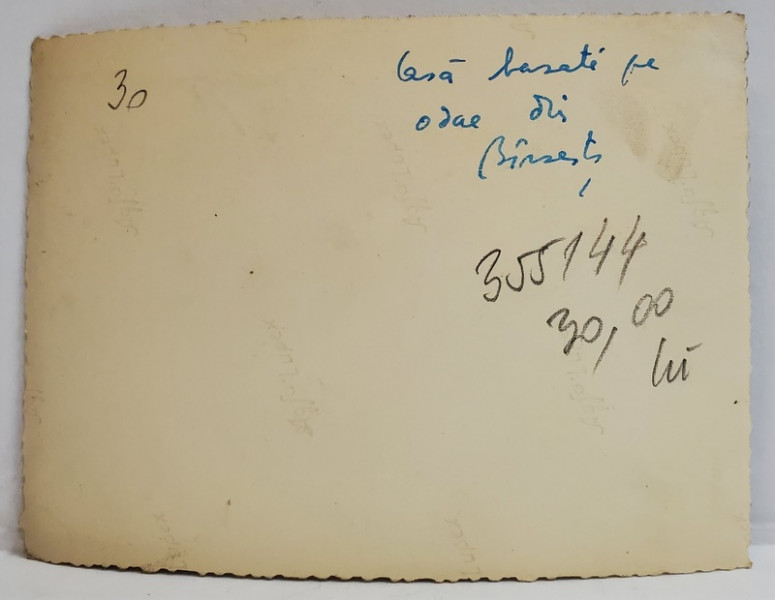 30
Casă bazată pe
odae din
Bîrsești
355144
30,00
lei